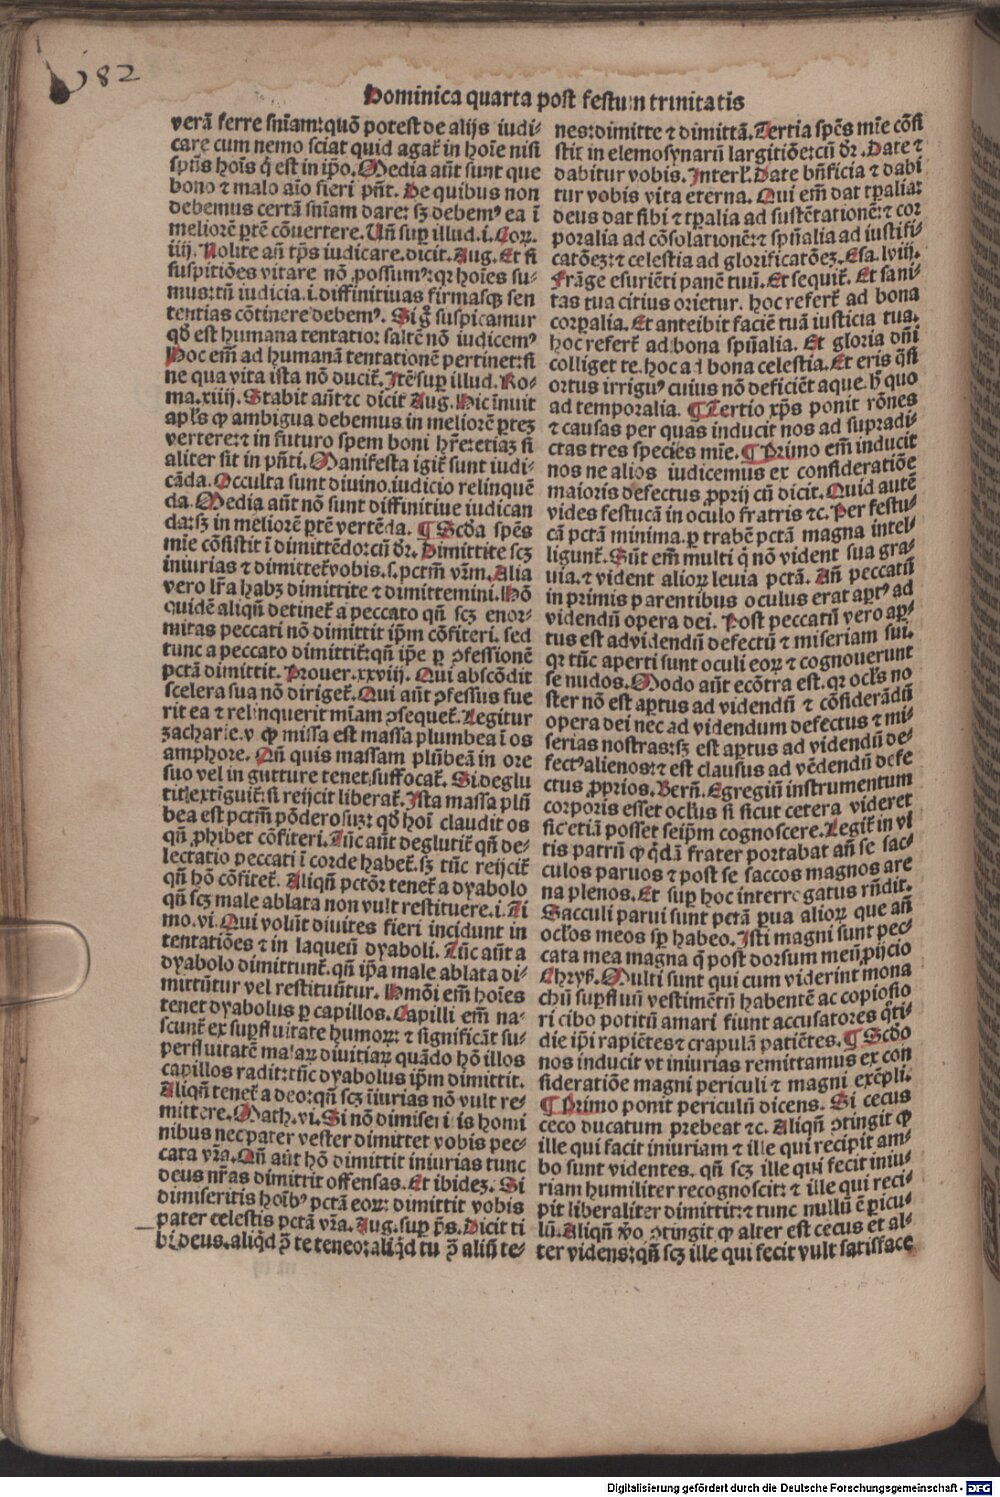 182
Dominica quarta post festum trinitatis
verā ferre sniam: quō potest de alijs iudi-
care cum nemo sciat quid agat̄ in hoīe nisi
spūs hoīs q̇ est in ip̄o. Media aūt sunt que
bono ⁊ malo aīo fieri pn̄t. De quibus non
debemus certā sn̄iam dare: sꝫ debemꝰ ea ī
meliorē ꝑtē cōuertere. Un̄ sup illud .i. Coꝝ.
iiij. Nolite an̄ tp̄s iudicare. dicit. Aug. Et si
suspitiōes vitare nō possumꝰ: qꝛ hoīes su-
mus: tn̄ iudicia .i. diffinitiuas firmasqꝫ sen
tentias cōtinere debemꝰ. Si gͦ suspicamur
qđ est humana tentatio: saltē nō iudicemꝰ
Hoc em̄ ad humanā tentationē pertinet: si
ne qua vita ista nō ducit̄. Itē sup illud. Ro-
ma. xiiij. Stabit aūt ⁊c dicit Aug. Hic īnuit
apl̄s ꝙ ambigua debemus in meliorē ꝑteꝫ
vertere: ⁊ in futuro spem boni hr̄e: etiaꝫ si
aliter sit in pn̄ti. Manifesta igit̄ sunt iudi-
cāda. Occulta sunt diuino iudicio relinquē
da. Media aūt nō sunt diffinitiue iudican
da: sꝫ in meliorē ꝑtē vertēda. ¶ Scđa spēs
mīe cōsistit ī dimittēdo: cū dr̄. Dimittite scꝫ
iniurias ⁊ dimittet̄ vobis .s. pctm̄ vr̄m. Alia
vero lr̄a habꝫ dimittite ⁊ dimittemini. Hō
quidē aliqn̄ detinet̄ a peccato qn̄ scꝫ enor-
mitas peccati nō dimittit ip̄m cōfiteri. sed
tunc a peccato dimittit̄: qn̄ ip̄e ꝑ ꝯfessionē
pctā dimittit. Prouer. xxviij. Qui abscōdit
scelera sua nō diriget̄. Qui aūt ꝯfessus fue
rit ea ⁊ relinquerit mīam ꝯsequet̄. Legitur
zacharie .v ꝙ missa est massa plumbea ī os
amphore. Qn̄ quis massam plūbeā in ore
suo vel in gutture tenet, suffocat̄. Si deglu
tit extīguit̄: si reijcit liberat̄. Ista massa plū
bea est pctm̄ pōderosuꝫ: qđ hoī claudit os
qn̄ ꝓhibet cōfiteri. Tūc aūt deglutit̄ qn̄ de-
lectatio peccati ī corde habet̄. sꝫ tūc reijcit̄
qn̄ hō cōfitet̄. Aliqn̄ pctōr tenet̄ a dyabolo
qn̄ scꝫ male ablata non vult restituere .i. Ti
mo. vi. Qui volūt diuites fieri incidunt in
tentatiōes ⁊ in laqueū dyaboli. Tūc aūt a
dyabolo dimittunt̄. qn̄ ip̄a male ablata di-
mittūtur vel restituūtur. Hmōi em̄ hoīes
tenet dyabolus ꝑ capillos. Capilli em̄ na-
scunt̄ ex supfluitate humoꝝ: ⁊ significāt su-
perfluitatē malaꝝ diuitiaꝝ quādo hō illos
capillos radit: tūc dyabolus ip̄m dimittit.
Aliqn̄ tenet̄ a deo: qn̄ scꝫ īiurias nō vult re-
mittere. Math. vi. Si nō dimiseritis homi
nibus nec pater vester dimittet vobis pec-
cata vr̄a. Qn̄ aūt hō dimittit iniurias tunc
deus nr̄as dimittit offensas. Et ibideꝫ. Si
dimiseritis hoībꝰ pctā eoꝝ: dimittit vobis
pater celestis pctā vr̄a. Aug. sup ps̄. Dicit ti
bi deus. aliqd̄ p̄ te teneo: aliqd̄ tu p̄ aliū te-
nes: dimitte ⁊ dimittā. Tertia spēs mīe cōsi
stit in elemosynarū largitiōe: cū dr̄. Date ⁊
dabitur vobis. Interl'. Date bn̄ficia ⁊ dabi
tur vobis vita eterna. Qui em̄ dat tp̄alia:
deus dat sibi ⁊ tp̄alia ad sustētationē: ⁊ cor
poralia ad cōsolationē: ⁊ spūalia ad iustifi-
catōeꝫ: ⁊ celestia ad glorificatōeꝫ. Esa. lviij.
Frāge esuriēti panē tuū. Et sequit̄. Et sani-
tas tua citius orietur. hoc refert̄ ad bona
corꝑalia. Et anteibit faciē tuā iusticia tua.
hoc refert̄ ad bona spūalia. Et gloria dn̄i
colliget te. hoc ad bona celestia. Et eris q̄si
ortus irriguꝰ cuius nō deficiēt aque. hͦ quo
ad temporalia. ¶ Tertio xp̄s ponit rōnes
⁊ causas per quas inducit nos ad supradi-
ctas tres species mīe. ¶ Primo em̄ inducit
nos ne alios iudicemus ex consideratiōe
maioris defectus ꝓprij cū dicit. Quid autē
vides festucā in oculo fratris ⁊c. Per festu-
cā pctā minima. ꝑ trabē pctā magna intel-
ligunt̄. Sūt em̄ multi q̇ nō vident sua gra-
uia. ⁊ vident alioꝝ leuia pctā. An̄ peccatū
in primis parentibus oculus erat aptꝰ ad
videndū opera dei. Post peccatū vero ap-
tus est ad videndū defectū ⁊ miseriam sui.
qꝛ tūc aperti sunt oculi eoꝝ ⁊ cognouerunt
se nudos. Modo aūt ecōtra est. qꝛ ocl̄s no
ster nō est aptus ad videndū ⁊ cōsiderādū
opera dei nec ad videndum defectus ⁊ mi-
serias nostras: sꝫ est aptus ad videndū de-
fectꝰ alienos: ⁊ est clausus ad vēdendū defe
ctus ꝓprios. Bern̄. Egregiū instrumentum
corporis esset ocl̄us si sicut cetera videret
sic etiā posset seip̄m cognoscere. Legit̄ in vi
tis patrū ꝙ q̇dā frater portabat an̄ se sac-
culos paruos ⁊ post se saccos magnos are
na plenos. Et sup hoc interrogatus rn̄dit.
Sacculi parui sunt pctā ꝑua alioꝝ que an̄
ocl̄os meos sp̄ habeo. Isti magni sunt pec-
cata mea magna q̄ post dorsum meū ꝓijcio
Chryß. Multi sunt qui cum viderint mona
chū supfluū vestimētū habentē ac copiosio
ri cibo potitū amari fiunt accusatores q̇ti-
die ip̄i rapiētes ⁊ crapulā patiētes. ¶ Scđo
nos inducit vt iniurias remittamus ex con
sideratiōe magni periculi ⁊ magni exēpli.
¶ Primo ponit periculū dicens. Si cecus
ceco ducatum prebeat ⁊c. Aliqn̄ ꝯtingit ꝙ
ille qui facit iniuriam ⁊ ille qui recipit am-
bo sunt videntes. qn̄ scꝫ ille qui fecit iniu-
riam humiliter recognoscit: ⁊ ille qui reci-
pit liberaliter dimittit: ⁊ tunc nullū ē ꝑicu-
lū. Aliqn̄ v̄o ꝯtingit ꝙ alter est cecus et al-
ter videns: qn̄ scꝫ ille qui fecit vult satisface
Digitalisierung gefördert durch die Deutsche Forschungsgemeinschaft - DFG